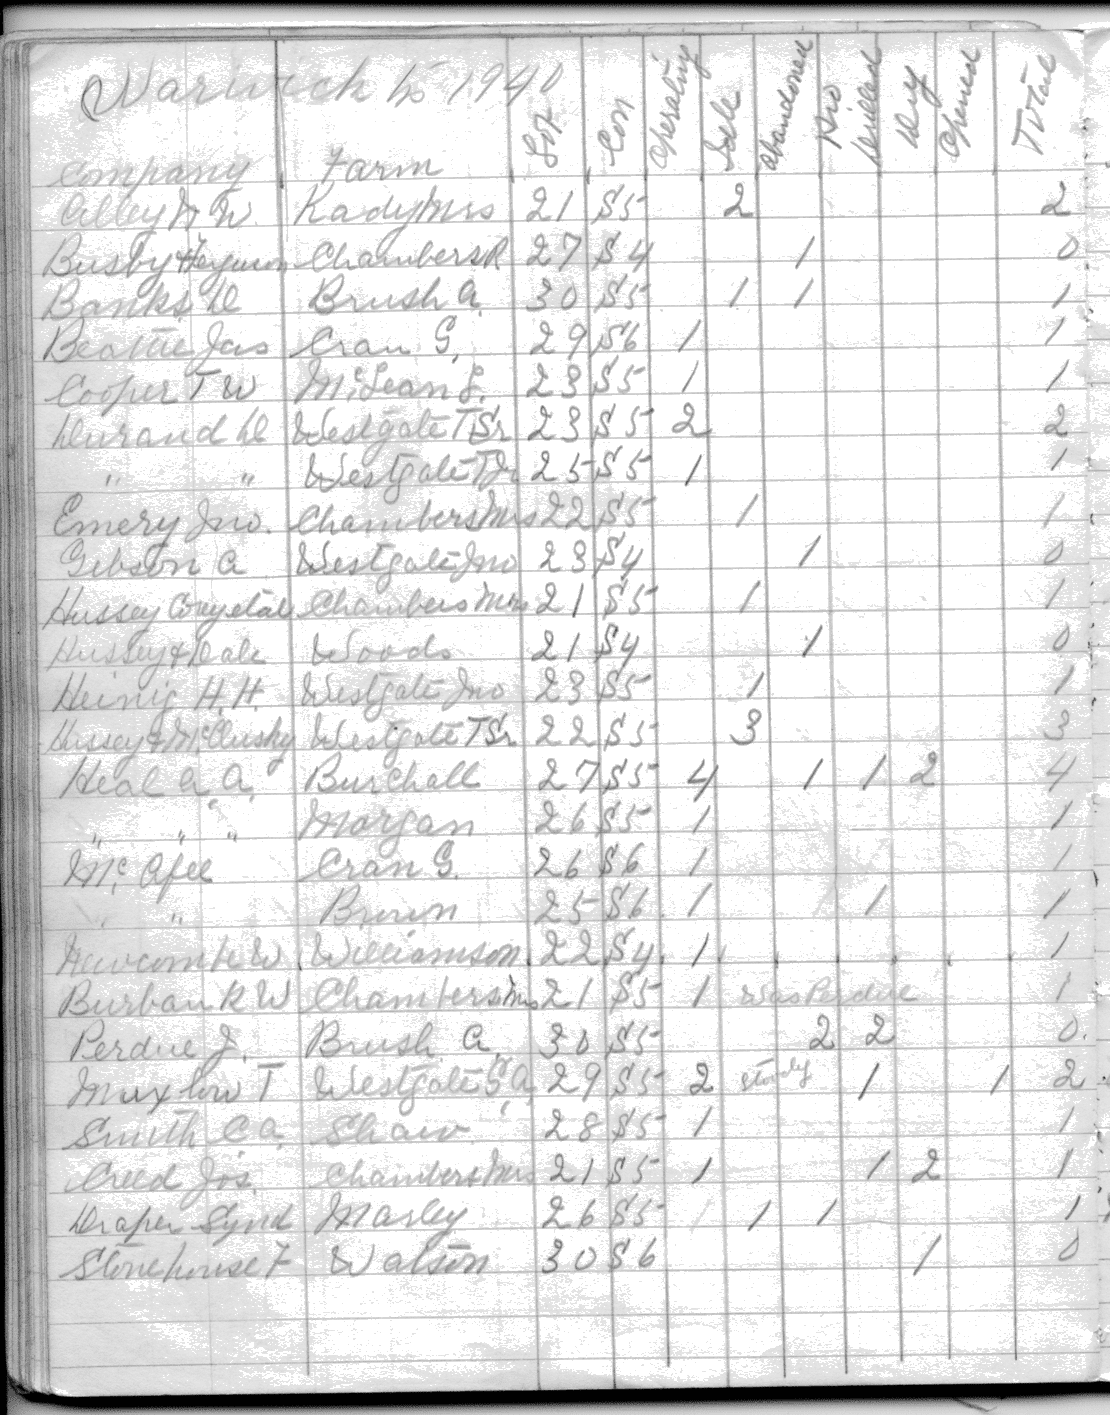 Warwick 1940
Company Farm Lot Con Operating Idle Abandoned No Drilled Dry Opened Total
Alley W Kady Mrs 21 S5 2 2
Busby & Ferguson Chambers R 27 S4 1 0
Banks D Brush A. 30 S5 1 1 1
Beattie Jas Cran G. 29 S6 1 1
Cooper T W McLean L. 23 S5 1 1
Durand D Westgate T Sr 23 S5 2 2
" " Westgate T Jr 25 S5 1 1
Emery Jno. Chambers Mrs 22 S5 1 1
Gibson A Westgate Jno 23 S4 1 0
Hussey Chambers Mrs 21 S5 1 1
Hussey & Dale Woods 21 S4 1 0
Heinig H. H. Westgate Jno 23 S5 1 1
Hussey & McClusky Westgate T Sr 22 S5 3 3
Heal A. A. Burchall 27 S5 4 1 1 2 4
" " " Morgan 26 S5 1 1
McAfee Cran G. 26 S6 1 1
" Brown 25 S6 1 1 1
Newcomb W Williamson 22 S4 1 1
Burban R W Chambers Mrs 21 S5 1 Was Perdue 1
Perdue J. Brush A. 30 S5 2 2 0
Muxlow T Westgate G. A. 29 S5 2 1 1 2
Smith C A. Shaw 28 S5 1 1
Creed Jos. Chambers Mrs 21 S5 1 1 2 1
Draper Synd Marley 26 S5 1 1 1 1
Stonehouse F Watson 30 S6 1 0